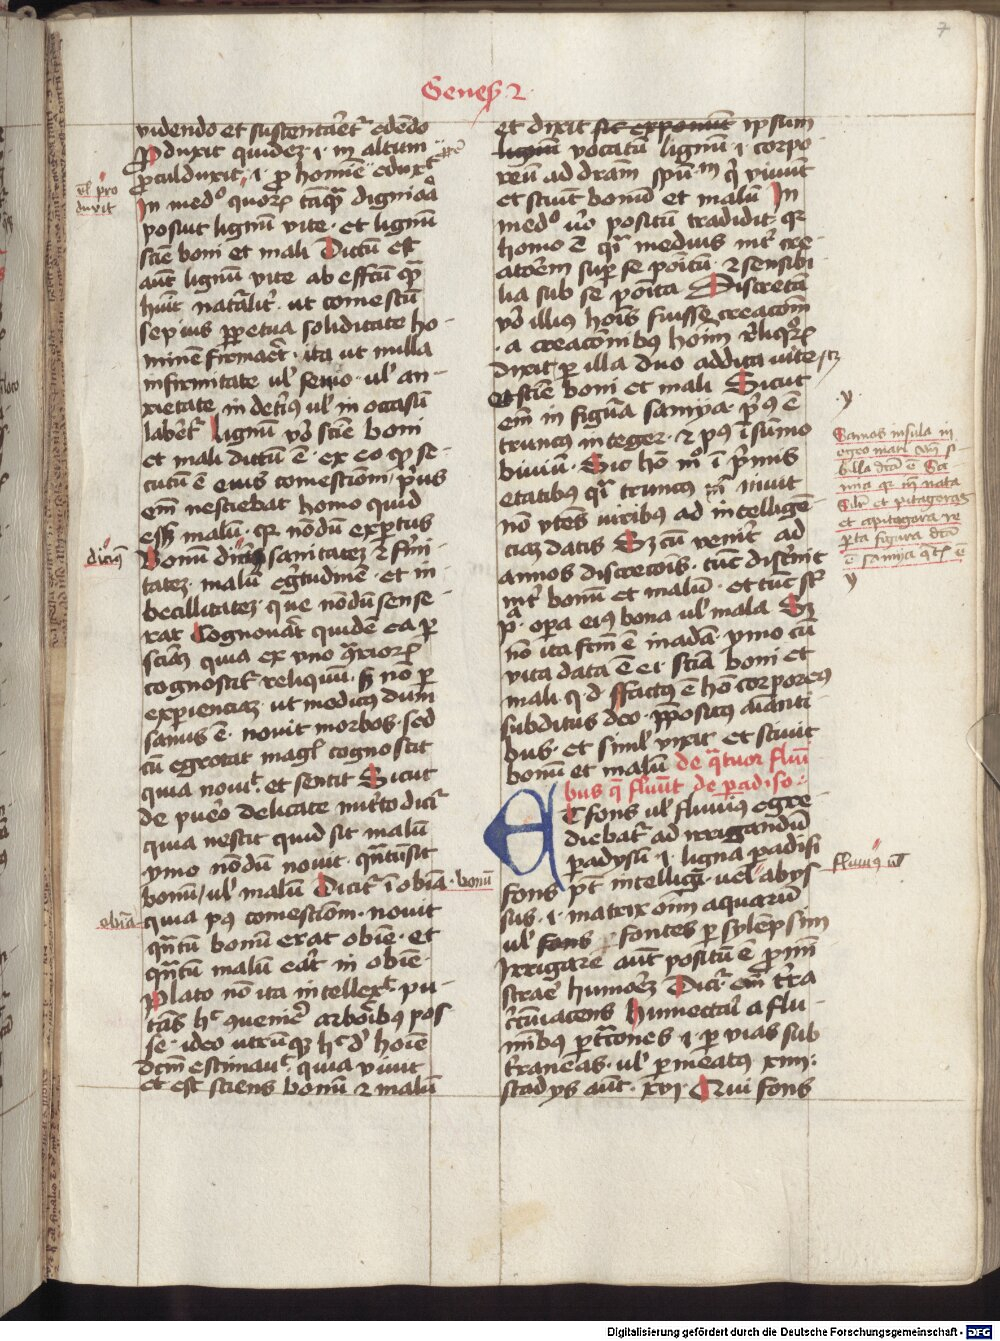 7
Genes 2
videndo et sustentaret edendo
Produxit quidem .i. in altum
procul duxit .i. pro homine eduxit
vel pro
duxit
In medio quorum tamquam digniora
posuit lignum vite et lignum
scientie boni et mali Dictum est
autem lignum vite ab effectu quem
habuit naturaliter ut comestum
sepius perpetua soliditate ho-
minem firmaret ita ut nulla
infirmitate vel senio vel an-
xietate in deterius vel in occasum
laberetur Lignum vero scientie boni
et mali dictum est ex eo quod se-
cutum est eius comestionem prius
enim nesciebat homo quid
esset malum quia nondum expertus
dicimus
Bonum sanitatem et firmi
tatem malum egritudinem et in
becillitatem que nondum sense
rat Cognoverat quidem ea per
scientiam quia ex uno contrariorum
cognoscitur reliquum sed non per
experienciam ut medicus dum
sanus est novit morbos sed
cum egrotat magis cognoscit
quia novit et sentit Sicut
de puero delicate nutrito dicitur
quia nescit quid sit malum
ymo nondum novit quantum sit
bonum vel malum Dicitur bonum
obediencia
quia post comestionem novit
quantum bonum erat obediencie et
quantum malum erat in obediencie
Plato non ita intellexit pu-
tans hec convenire arboribus pos
se ideo utrumque hec de homine
dictum estimavit quia vivit
et est sciens bonum et malum
et dixit sic exponunt ipsum
lignum vocatum lignum .i. corpo
reum ad differentiam spirituum in quo vivunt
et sciunt bonum et malum In
medio vero positum tradidit quia
homo est quasi medius inter cre-
atorem super se positum et sensibi
lia sub se posita Discretam
vero illius hominis fuisse creacionem
a creacionibus hominum reliquorum
dixit per illa duo addita vite etc
Et scientie boni et mali Sicut
enim in figura samya prius est
truncus integer et post in summo
bivium Sic homo modo in primis
etatibus quasi truncus
non utens viribus ad intelligen
ciam datis Sed cum venit ad
annos discrecionis tunc discernit
inter bonum et malum et tunc sunt
opera eius bona vel mala Sed
non ita factum est in adam ymo cum
vita data est ei scientia boni et
mali q. d. factus est homo corporeus
subditus deo prepositus animanti
bus et simul vixit et scivit
bonum et malum de quatuor fluvi
bus qui fluunt de paradiso
ET fons vel fluvius egre
diebatur ad irrigandum
padysum .i. ligna paradisi
fluvius vel
fons potest intelligi vel abys
sus .i. matrix omnium aquarum
vel fons fontes per sylempsim
Irrigare autem positum est per inter
strare humorem Dicitur enim terra
circumiacens humectari a flu-
minibus .i. per vias sub
terraneas vel per meatus xiiii
stadys autem xvi Qui fons
Samos insula in
egeo mari ubi si
billa dicta est Sa
mia quia inde nata
Similiter et pitagoras
et a pitagora re
perta figura dicta
est samya que est
y